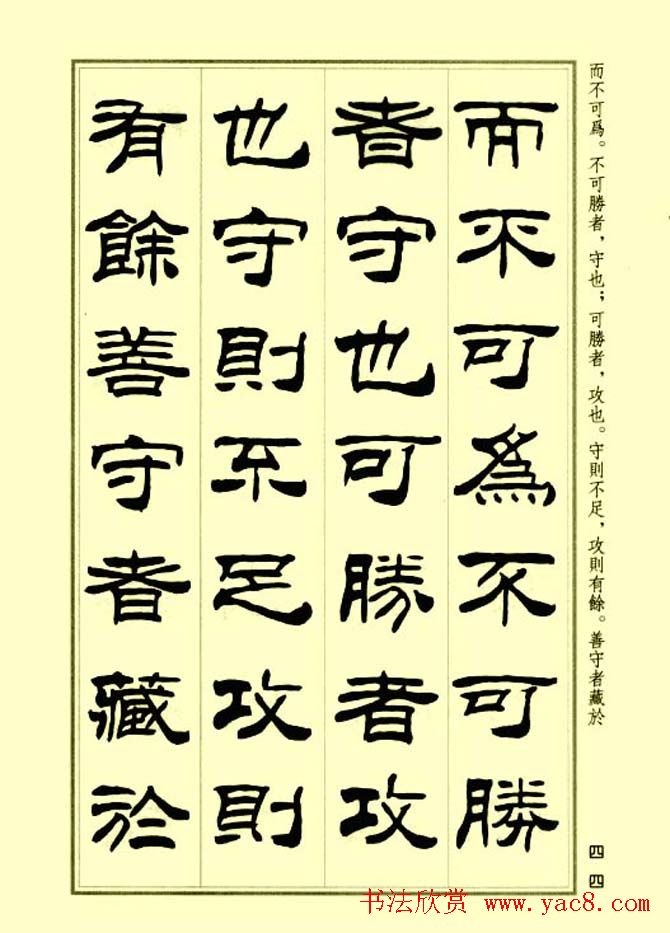 而不可為。不可勝者，守也；可勝者，攻也。守則不足，攻則有餘。善守者藏於
而不可為不可勝
者守也可勝者攻
也守則不足攻則
有餘善守者藏於
四四
书法欣赏 www.yac8.com